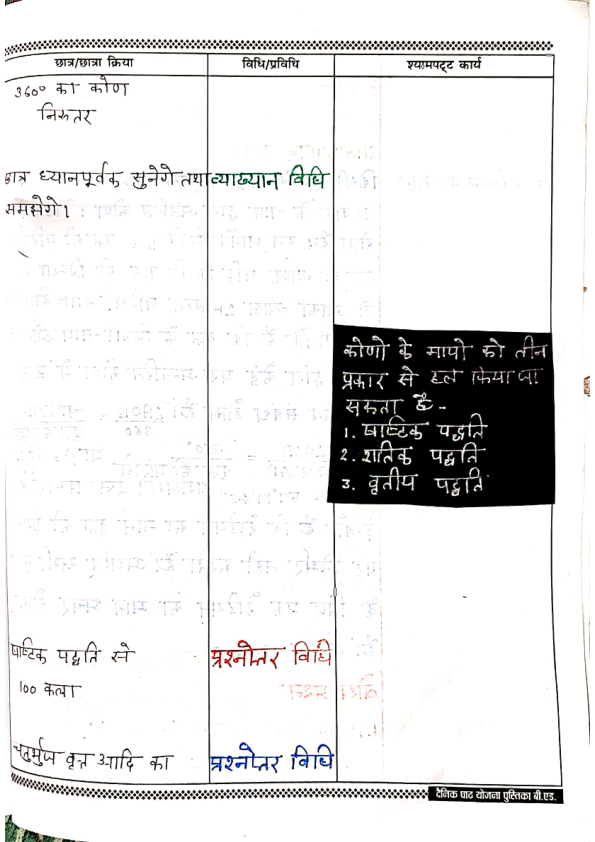 छात्र/छात्रा क्रिया
विधि/प्रविधि
श्यामपट्ट कार्य
360° का कोण
निरुतर
छात्र ध्यानपूर्वक सुनेगे तथा
समझेगे।
व्याख्यान विधि
कोणो के मापो को तीन
प्रकार से हल किया जा
सकता है -
1. षाष्टिक पद्धति
2. शतिक पद्धति
3. वृतीय पद्धति
षाष्टिक पद्धति से
100 कला
प्रश्नोतर विधि
चतुर्भुज वृत्त आदि का
प्रश्नोतर विधि
दैनिक पाठ योजना पुस्तिका बी.एड.